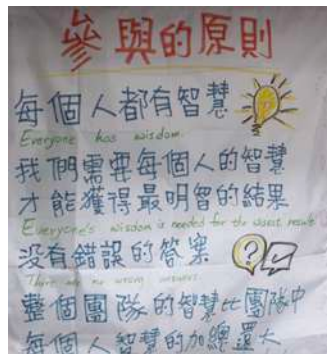 參與的原則
每個人都有智慧
Everyone has wisdom.
我們需要每個人的智慧
才能獲得最明智的結果
Everyone's wisdom is needed for the wisest result
没有錯誤的答案
There are no wrong answers.
整個團隊的智慧比團隊中
每個人智慧的加總還大